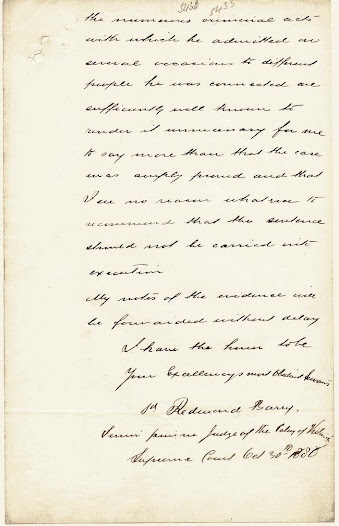 5433 5433
the numerous criminal acts
with which he admitted on
several occasions to different
people he was connected are
sufficiently well known to
render it unnecessary for me
to say more than that the case
was amply proved and that
I see no reason whatever to
recommend that the sentence
should not be carried into
execution
My notes of the evidence will
be forwarded without delay
I have the honor to be
Your Excellencys most Obedient Servant
sd Redmond Barry.
Senior puisne Judge of the Colony of Victoria
Supreme Court Oct 30th 1880